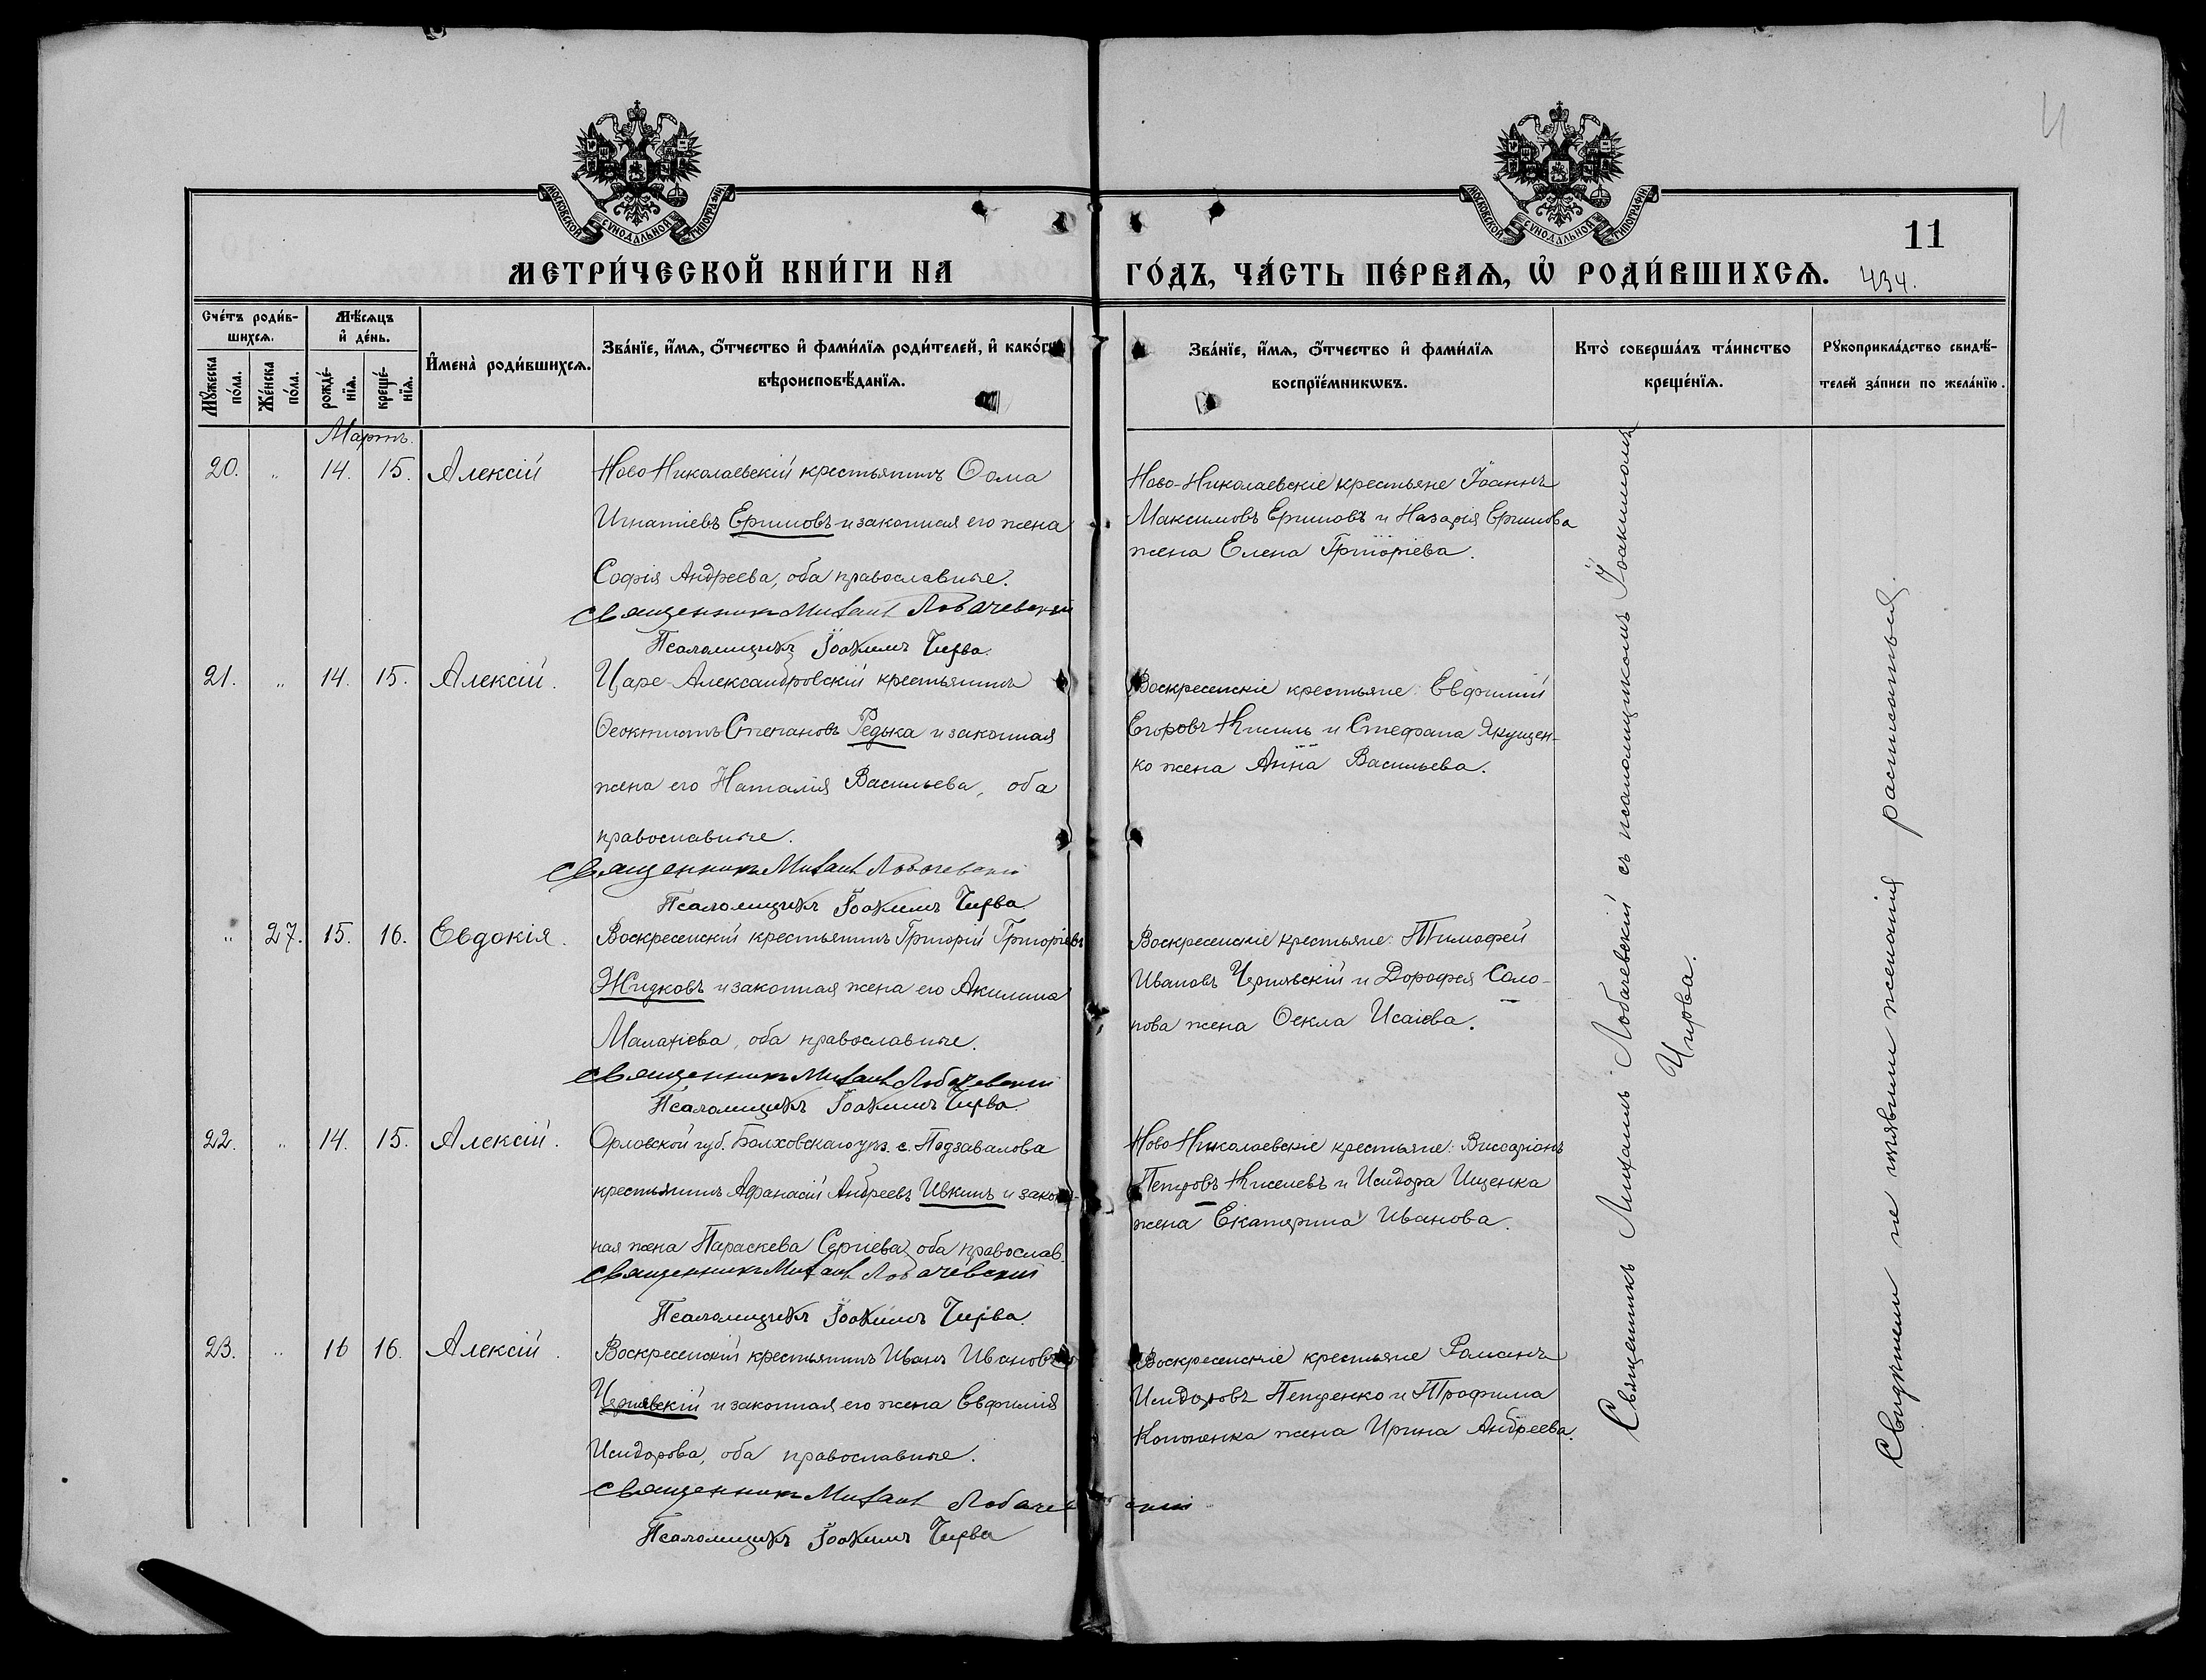 И
МОСКОВСКОЙ СѴНОДАЛЬНОЙ ТИПОГРАФІИ
МОСКОВСКОЙ СѴНОДАЛЬНОЙ ТИПОГРАФІИ
11
МЕТРИ́ЧЕСКОЙ КНИ́ГИ НА
ГО́ДЪ, ЧА́СТЬ ПЕ́РВАѦ, Ѿ РОДИ́ВШИХСѦ.
434.
Сче́тъ роди́в-
шихсѧ.
Мѣ́сѧцъ
и҆ де́нь.
Мꙋ́жеска
по́ла.
Же́нска
по́ла.
рожде́-
нїѧ.
креще́-
нїѧ.
И҆мена̀ роди́вшихсѧ.
Зва́нїе, и҆́мѧ, о҆́тчество и҆ фами́лїѧ роди́телей, и҆ како́гѡ
вѣроисповѣ́данїѧ.
Зва́нїе, и҆́мѧ, о҆́тчество и҆ фами́лїѧ
воспрїе́мникѡвъ.
Кто̀ соверша́лъ та́инство
креще́нїѧ.
Рꙋкоприкла́дство свидѣ́-
телей за́писи по жела́нїю.
Мартъ.
20. „ 14. 15. Алексій
Ново Николаевскій крестьянинъ Ѳома
Игнатіевъ Ершовъ и законная его жена
Софія Андреева, оба православные.
Священникъ Михаилъ Лобачевскій
Псаломщикъ Іоакимъ Чирва.
Ново-Николаевскіе крестьяне Іоаннъ
Максимовъ Ершовъ и Назарія Ершова
жена Елена Григоріева.
21. „ 14. 15. Алексій.
Царе-Александровскій крестьянинъ
Ѳеоктистъ Степановъ Редька и законная
жена его Наталія Васильева, оба
православные.
Священникъ Михаилъ Лобачевскій
Псаломщикъ Іоакимъ Чирва
Воскресенскіе крестьяне: Евфимій
Егоровъ Кисиль и Стефана Якущен-
ко жена Анна Васильева.
„ 27. 15. 16. Евдокія.
Воскресенскій крестьянинъ Григорій Григоріевъ
Жидковъ и законная жена его Акилина
Маланіева, оба православные.
Священникъ Михаилъ Лобачевскій
Псаломщикъ Іоакимъ Чирва.
Воскресенскіе крестьяне: Тимофей
Ивановъ Чернявскій и Дорофея Соло-
нова жена Ѳекла Исаіева.
22. „ 14. 15. Алексій.
Орловской губ. Болховскаго уѣз. с. Подзавалова
крестьянинъ Афанасій Андреевъ Ивкинъ и закон-
ная жена Параскева Сергіева, оба православ.
Священникъ Михаилъ Лобачевскій
Псаломщикъ Іоакимъ Чирва.
Ново Николаевскіе крестьяне: Виссаріонъ
Петровъ Киселевъ и Исидора Ищенка
жена Екатерина Иванова.
23. „ 16 16. Алексій.
Воскресенскій крестьянинъ Иванъ Ивановъ
Чернявскій и законная его жена Евфимія
Исидорова, оба православные.
Священникъ Михаилъ Лобачевскій
Псаломщикъ Іоакимъ Чирва
Воскресенскіе крестьяне Романъ
Исидоровъ Петренко и Трофима
Кононенка жена Ирина Андреева.
Священникъ Михаилъ Лобачевскій съ псаломщикомъ Іоакимомъ
Чирва.
Свидѣтели не изъявили желанія росписаться.